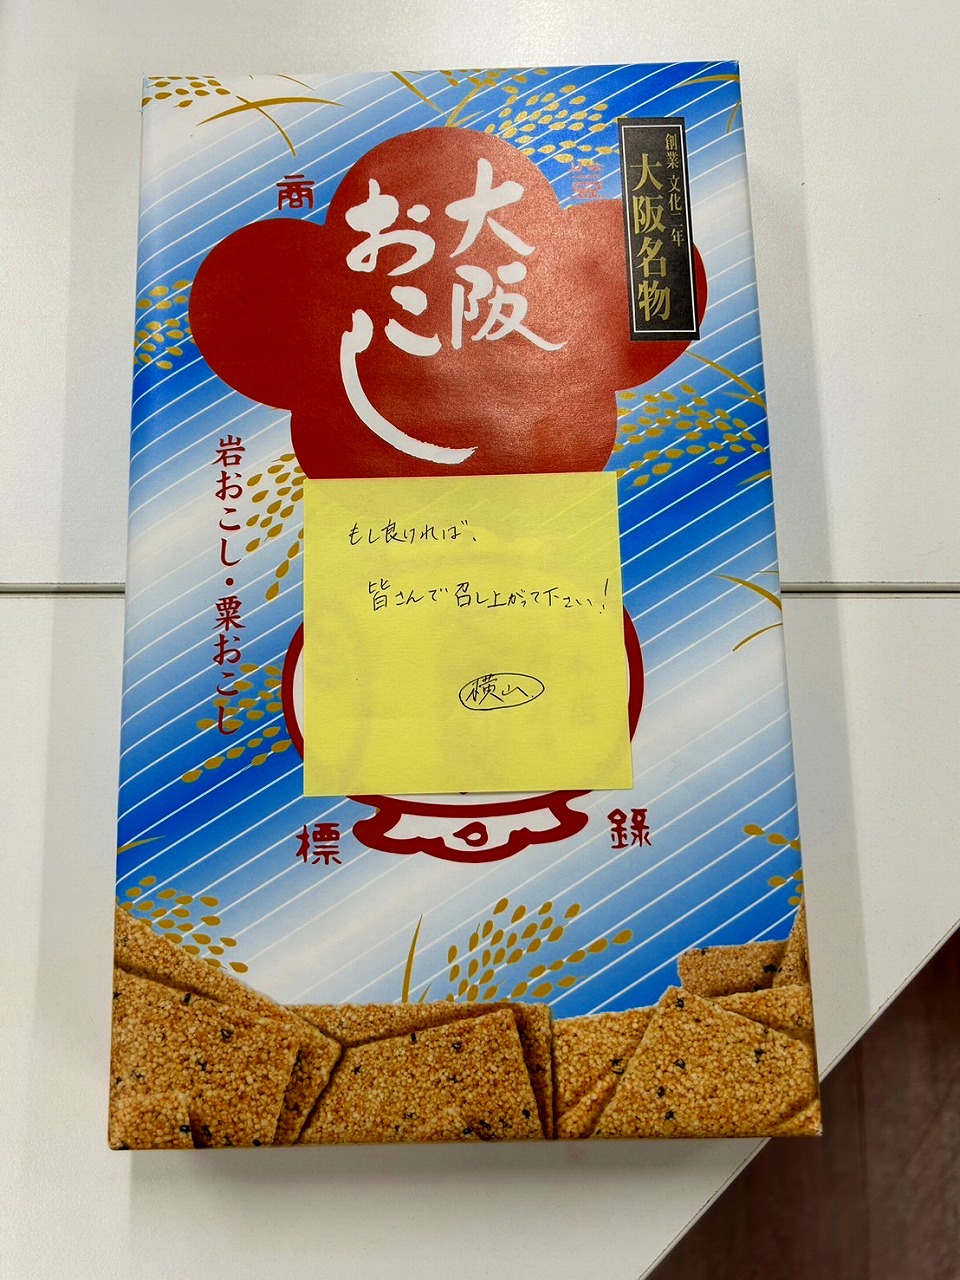 創業 文化二年
大阪名物
大阪
おこし
商
標
録
岩おこし・粟おこし
もし良ければ、
皆さんで召し上がって下さい!
横山